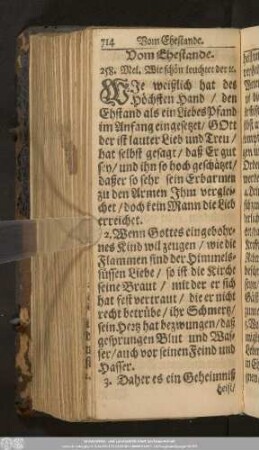 714 Vom Ehestande.
Vom Ehestande.
258. Mel. Wie schön leuchtet der ꝛc.
WJe weißlich hat des
Höchsten Hand / den
Ehstand als ein Liebes Pfand
im Anfang eingesetzet / GOtt
der ist lauter Lieb und Treu /
hat selbst gesagt / daß Er gut
sey / und ihn so hoch geschätzet /
daß er so sehr sein Erbarmen
zu den Armen Jhm verglei-
chet / doch kein Mann die Lieb
erreichet.
2. Wenn Gottes eingebohr-
nes Kind wil zeugen / wie die
Flammen sind der Himmels-
süssen Liebe / so ist die Kirche
seine Braut / mit der er sich
hat fest vertraut / die er nicht
recht betrübe / ihr Schmertz /
sein Hertz hat bezwungen / daß
gesprungen Blut und Was-
ser / auch vor seinen Feind und
Hasser.
3. Daher es ein Geheimniß
heist /